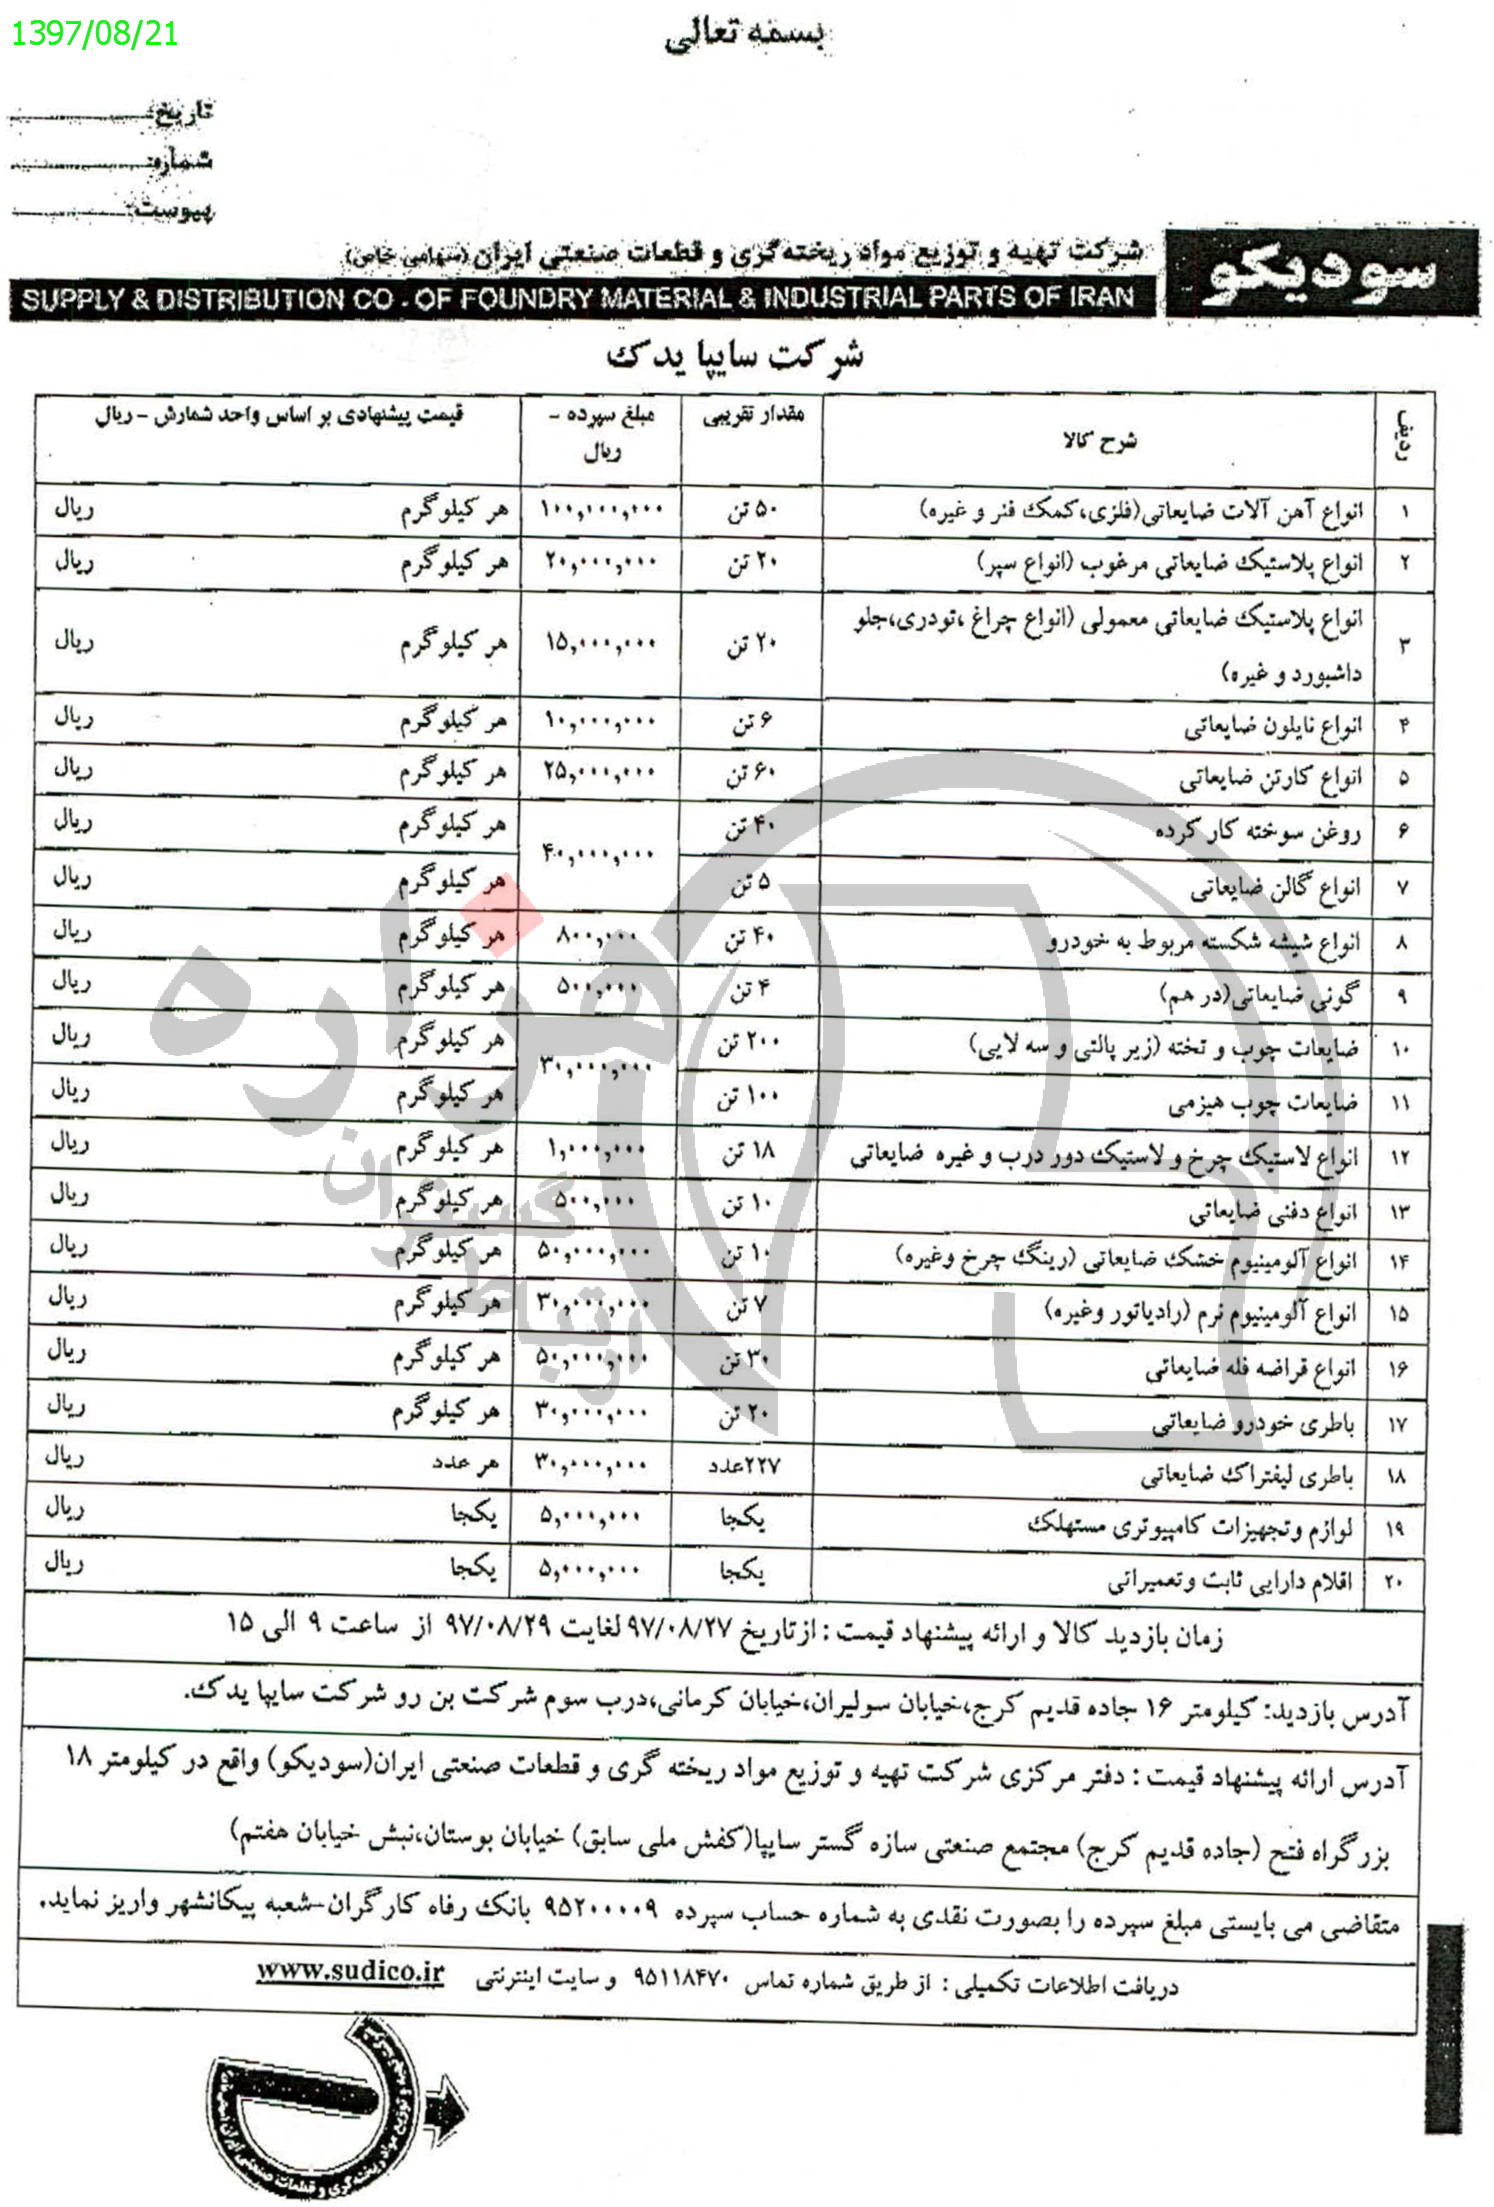 1397/08/21
بسمه تعالی
تاریخ:
شماره:
پیوست:
سودیکو
شرکت تهیه و توزیع مواد ریخته‌گری و قطعات صنعتی ایران (سهامی خاص)
SUPPLY & DISTRIBUTION CO - OF FOUNDRY MATERIAL & INDUSTRIAL PARTS OF IRAN
شرکت سایپا یدک
ردیف شرح کالا مقدار تقریبی مبلغ سپرده - قیمت پیشنهادی بر اساس واحد شمارش - ریال
ریال
۱ انواع آهن آلات ضایعاتی(فلزی،کمک فنر و غیره) ۵۰ تن ۱۰۰,۰۰۰,۰۰۰ هر کیلوگرم ریال
۲ انواع پلاستیک ضایعاتی مرغوب (انواع سپر) ۲۰ تن ۲۰,۰۰۰,۰۰۰ هر کیلوگرم ریال
۳ انواع پلاستیک ضایعاتی معمولی (انواع چراغ ،تودری،جلو
داشبورد و غیره) ۲۰ تن ۱۵,۰۰۰,۰۰۰ هر کیلوگرم ریال
۴ انواع نایلون ضایعاتی ۶ تن ۱۰,۰۰۰,۰۰۰ هر کیلوگرم ریال
۵ انواع کارتن ضایعاتی ۶۰ تن ۲۵,۰۰۰,۰۰۰ هر کیلوگرم ریال
۶ روغن سوخته کار کرده ۴۰ تن ۴۰,۰۰۰,۰۰۰ هر کیلوگرم ریال
۷ انواع گالن ضایعاتی ۵ تن هر کیلوگرم ریال
۸ انواع شیشه شکسته مربوط به خودرو ۴۰ تن ۸۰۰,۰۰۰ هر کیلوگرم ریال
۹ گونی ضایعاتی(در هم) ۴ تن ۵۰۰,۰۰۰ هر کیلوگرم ریال
۱۰ ضایعات چوب و تخته (زیر پالتی و سه لایی) ۲۰۰ تن ۳۰,۰۰۰,۰۰۰ هر کیلوگرم ریال
۱۱ ضایعات چوب هیزمی ۱۰۰ تن هر کیلوگرم ریال
۱۲ انواع لاستیک چرخ و لاستیک دور درب و غیره ضایعاتی ۱۸ تن ۱,۰۰۰,۰۰۰ هر کیلوگرم ریال
۱۳ انواع دفنی ضایعاتی ۱۰ تن ۵۰۰,۰۰۰ هر کیلوگرم ریال
۱۴ انواع آلومینیوم خشک ضایعاتی (رینگ چرخ وغیره) ۱۰ تن ۵۰,۰۰۰,۰۰۰ هر کیلوگرم ریال
۱۵ انواع آلومینیوم نرم (رادیاتور وغیره) ۷ تن ۳۰,۰۰۰,۰۰۰ هر کیلوگرم ریال
۱۶ انواع قراضه فله ضایعاتی ۳۰ تن ۵۰,۰۰۰,۰۰۰ هر کیلوگرم ریال
۱۷ باطری خودرو ضایعاتی ۲۰ تن ۳۰,۰۰۰,۰۰۰ هر کیلوگرم ریال
۱۸ باطری لیفتراک ضایعاتی ۲۲۷عدد ۳۰,۰۰۰,۰۰۰ هر عدد ریال
۱۹ لوازم وتجهیزات کامپیوتری مستهلک یکجا ۵,۰۰۰,۰۰۰ یکجا ریال
۲۰ اقلام دارایی ثابت وتعمیراتی یکجا ۵,۰۰۰,۰۰۰ یکجا ریال
زمان بازدید کالا و ارائه پیشنهاد قیمت : ازتاریخ ۹۷/۰۸/۲۷ لغایت ۹۷/۰۸/۲۹ از ساعت ۹ الی ۱۵
آدرس بازدید: کیلومتر ۱۶ جاده قدیم کرج،خیابان سولیران،خیابان کرمانی،درب سوم شرکت بن رو شرکت سایپا یدک.
آدرس ارائه پیشنهاد قیمت : دفتر مرکزی شرکت تهیه و توزیع مواد ریخته گری و قطعات صنعتی ایران(سودیکو) واقع در کیلومتر ۱۸
بزرگراه فتح (جاده قدیم کرج) مجتمع صنعتی سازه گستر سایپا(کفش ملی سابق) خیابان بوستان،نبش خیابان هفتم)
متقاضی می بایستی مبلغ سپرده را بصورت نقدی به شماره حساب سپرده ۹۵۲۰۰۰۰۹ بانک رفاه کارگران-شعبه پیکانشهر واریز نماید.
دریافت اطلاعات تکمیلی : از طریق شماره تماس ۹۵۱۱۸۴۷۰ و سایت اینترنتی www.sudico.ir
هزاره
گستران